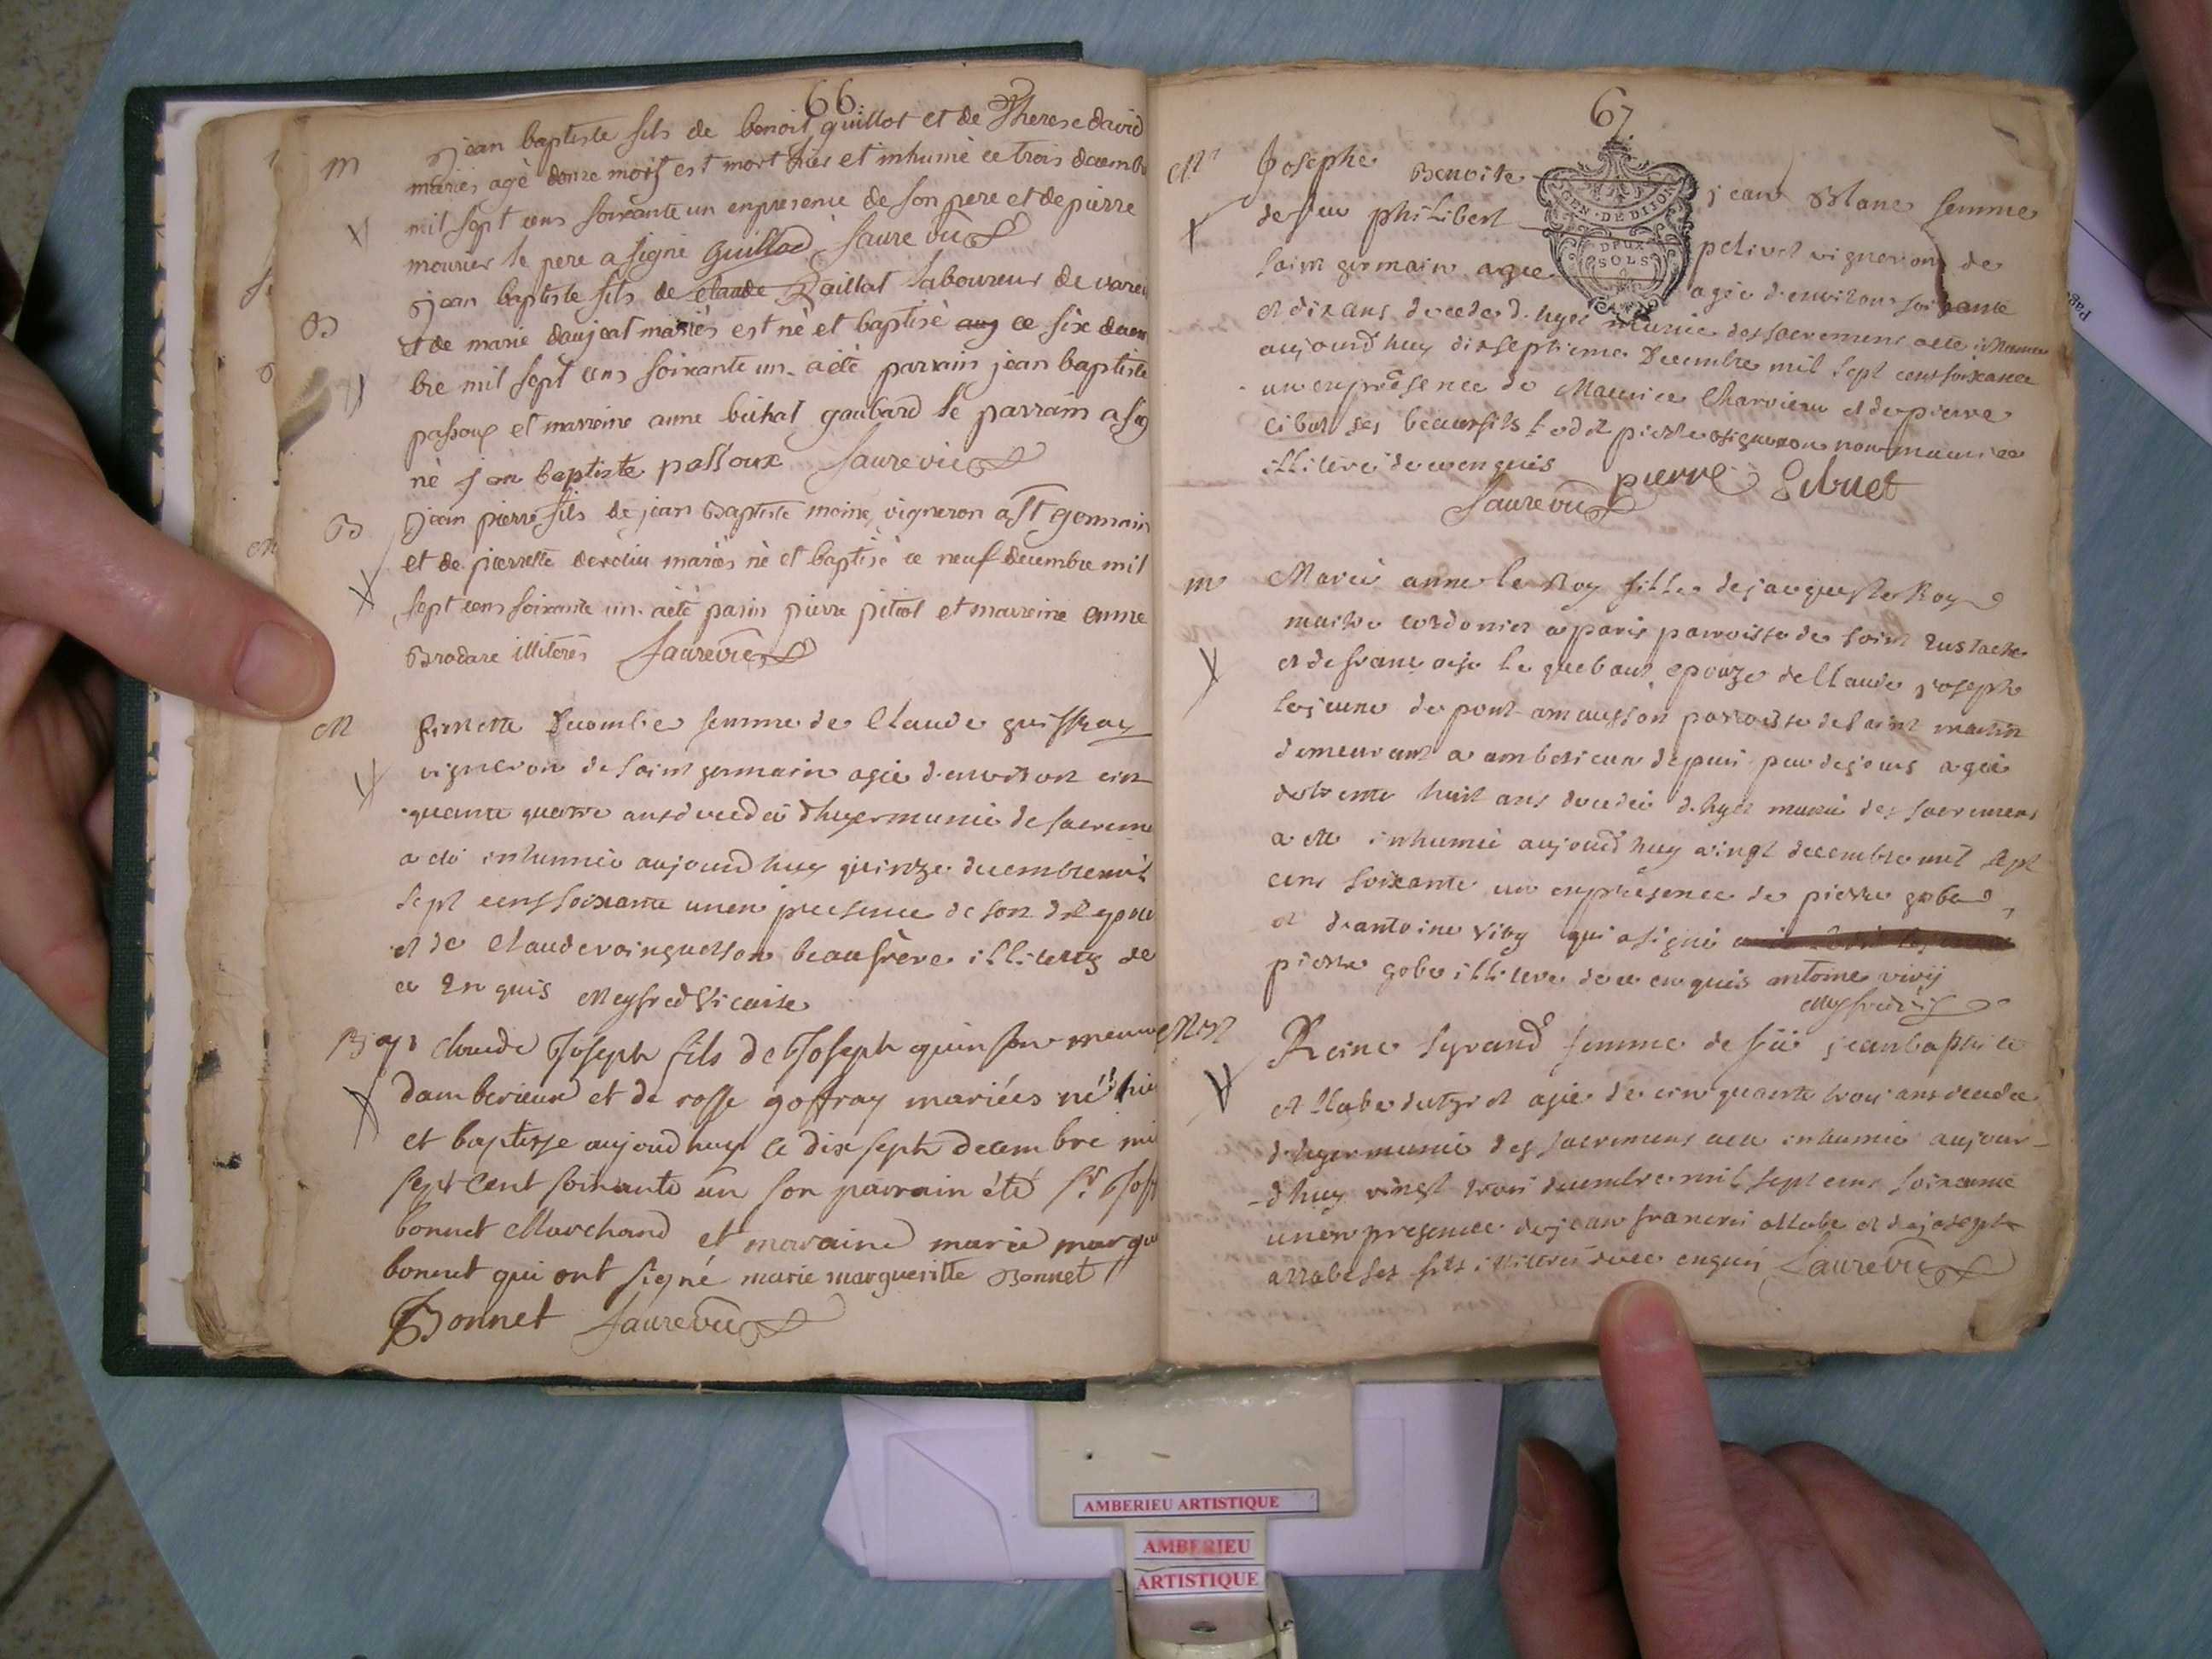 66
m
jean baptiste fils de benoit guillot et de Therese david
mariés agé donze mois est mort hier et inhumé ce trois decemb
mil sept cens soixante un en presence de son pere et de pierre
mourier le pere a signé Guillod faure vic
B
jean baptiste fils de claude Raillat laboureur de varei
et de marie daujeat mariés est né et baptisé auj ce six decem
bre mil sept cens soixante un. a été parrain jean baptiste
passoux et marreine anne buhat goubard le parrain a sig
né jean baptiste passoux faure vic
B
jean pierre fils de jean Baptiste moine vigneron a St germain
et de pierrette derolin mariés né et baptisé ce neuf decembre mil
sept cens soixante un. a été parin pierre pitiot et marreine anne
Brodare illiterés faure vic
M
femme de Claude
vigneron de saint germain agée denviron cin
quante quatre ans decedée dhyer munie de sacreme
a eté inhumée aujourdhuy quinze decembre mil
sept cens soixante un en presence de son dit epou
et de Claude son beaufrère illiterés de
ce enquis Meyfred Vicaire
claude Joseph fils de Joseph quinson
damberieux et de rosse goffray mariées né hie
et baptisse aujoudhuy ce dix sept decembre mi
sept cent soixante un son parrain été sr Jose
bonnet Marchand et maraine marie margu
bonnet qui ont signé marie marguerite Bonnet
Bonnet faure vic
67
GEN · DE DIJON
DEUX
SOLS
Mt
Josephe Benoite jean Blanc femme
de feu philibert petivet vigneron de
saint germain agée agée denviron soixante
et dix ans decedée dhyer munie des sacremens a eté inhumée
aujourdhuy dixseptieme Decembre mil sept cens soixante
un en présence de Maurice Charvieu et de pierre
cibuet ses beaux fils ledit pierre a signé non maurice
illiteré de ce enquis pierre Sibuet
faure vic
m
Marie anne le Roy fille de jacque le Roy
maitre cordonier a paris parroisse de saint Eustache
et de françoise le quebaut epouze de Claude joseph
lejeune de pont amausson parroisse de saint martin
demeurant a amberieux depuis peu de jours agée
de trente huit ans decedée dhyer munie des sacremens
a eté inhumée aujourdhuy vingt decembre mil sept
cens soixante un en présence de pierre gobe
et dantoine vivy qui a signé
pierre gobe illiteré de ce enquis antoine vivij
Meyfred vic
Mort
Reine femme de feu jean baptiste
agée de cinquante trois ans decedée
dhyer munie des sacremens a eté inhumée aujour-
-dhuy vingt trois decembre mil sept cens soixante
un en presence de jean francois et de joseph
arrabe ses fils illiterés de ce enquis faure vic
AMBERIEU ARTISTIQUE
AMBERIEU
ARTISTIQUE